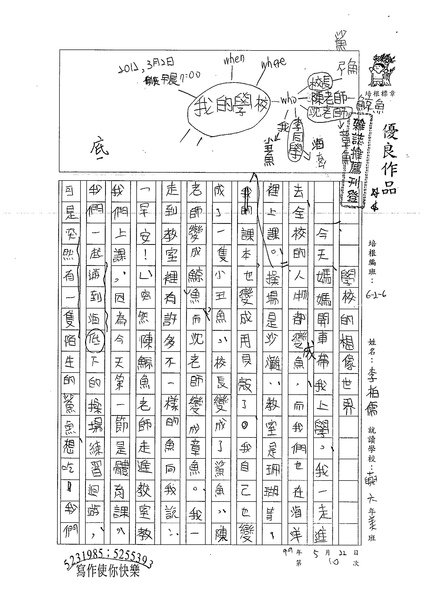 when
where
who
2012,3月2日
早晨7:00
我的學校
校長
陳老師—鯨魚
沈老師—章魚
李同學
我
鯊魚
底
培根標章
優良作品
雜誌推薦刊登
培根編班：6-2-6
姓名：李柏儒
就讀學校：
六年 班
99年5月22日
第10次
學校的想像世界
今天媽媽開車帶我上學。我一走進
去，全校的人都變成魚，而我們也在海洋
裡上課。操場是沙灘，教室是珊瑚礁，
我的課本也變成用貝殼了。我自己也變
成了一隻小丑魚，校長變成了鯊魚。陳
老師變成鯨魚，而沈老師變成章魚。我一
走到教室裡有許多不一樣的魚向我說：
「早安！」忽然陳鯨魚老師走進教室教
我們上課，因為今天第一節是體育課。
我們一起游到海底下的操場練習
可是突然有一隻陌生的鯊魚想吃我們
5231985；5255393
寫作使你快樂